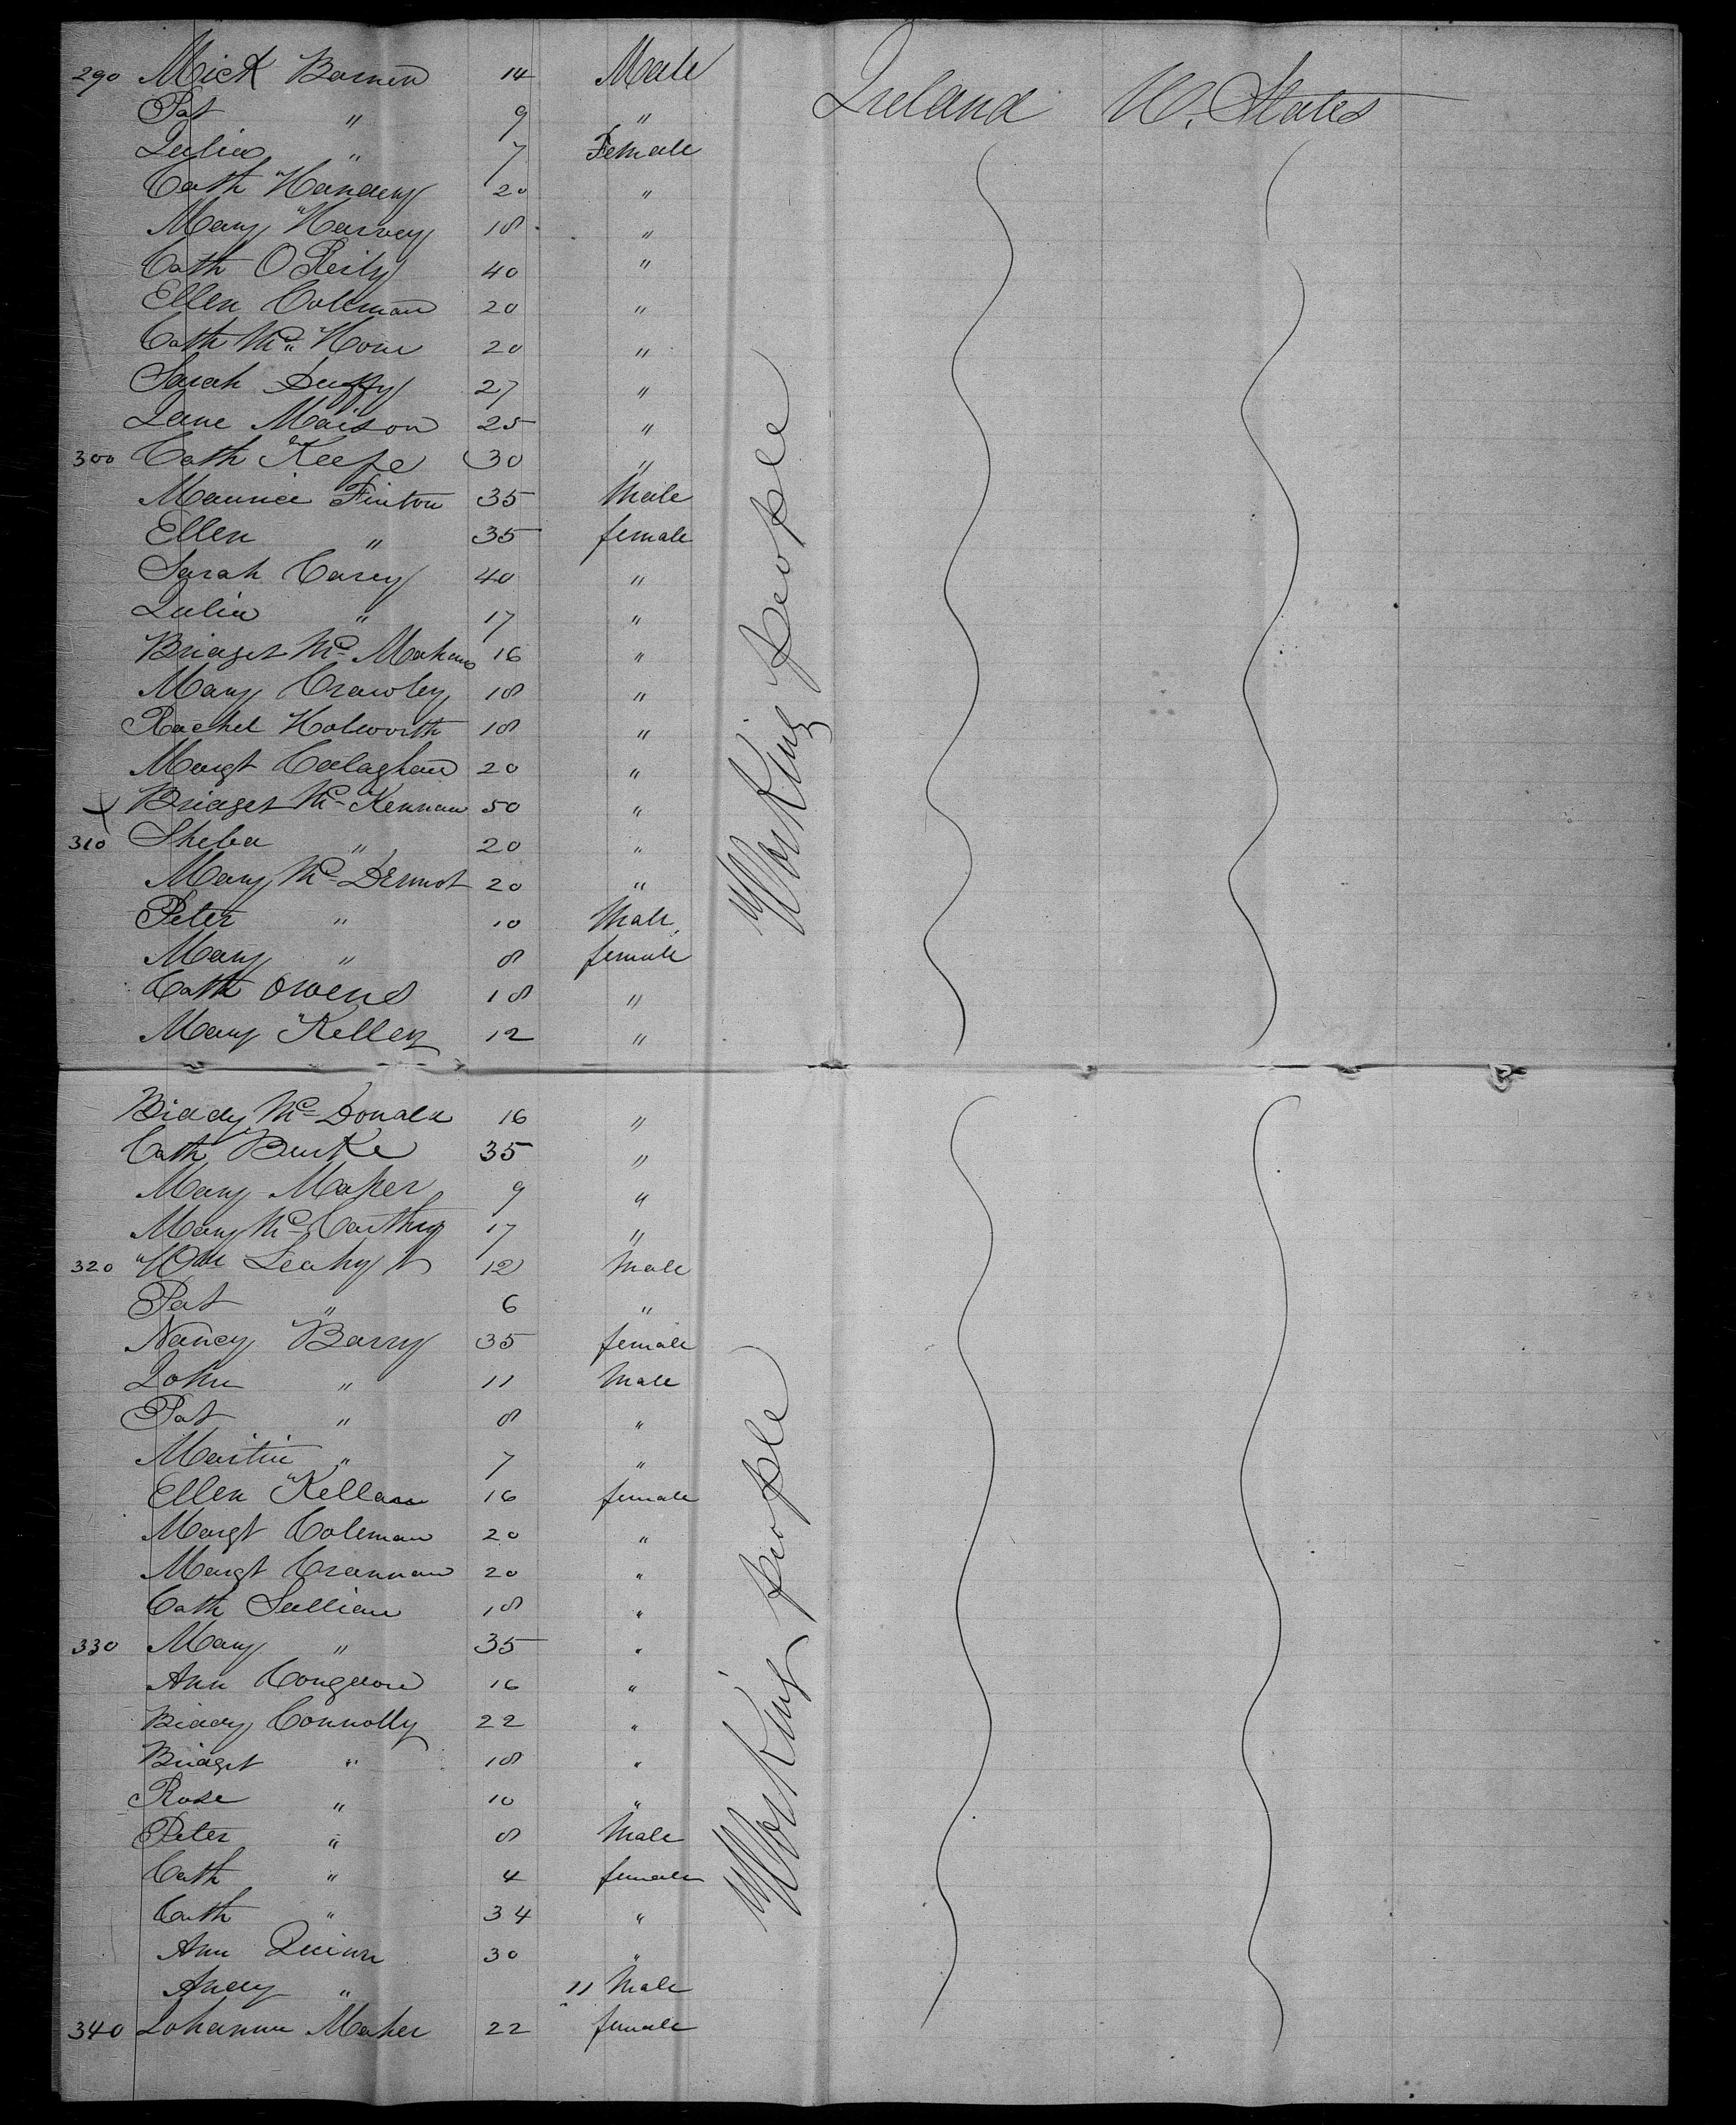 290 Mick Barnen 14 Male Ireland U. States
Pat " 9 "
Julia " 7 Female
Cath Handeny 20 "
Mary Harvey 18 "
Cath O Reily 40 "
Ellen Coleman 20 "
Cath Mc Hone 20 "
Sarah Duffy 27 "
Jane Maison 25 "
300 Cath Keefe 30 "
Maurice Finton 35 Male
Ellen " 35 female
Sarah Carey 40 "
Julia " 17 "
Bridget Mc Mahan 16 "
Mary Crawley 18 "
Rachel Holworth 18 "
Margt Calaghan 20 "
x Bridget Mc Kennan 50 "
310 Sheba " 20 "
Mary Mc Dermot 20 "
Peter " 10 Male
Mary " 8 female
Cath Owens 18 "
Mary Kelley 12 "
Working people
Biddy Mc Donald 16 "
Cath Burke 35 "
Mary Maher 9 "
Mary Mc Carthy 17 "
320 Wm Leahy 12 Male
Pat " 6 "
Nancy Barry 35 female
John " 11 Male
Pat " 8 "
Martin " 7 "
Ellen Kellan 16 female
Margt Coleman 20 "
Margt Crannan 20 "
Cath Sullian 18 "
330 Mary " 35 "
Ann Congdon 16 "
Biddy Connolly 22 "
Bridget " 18 "
Rose " 10 "
Peter " 8 Male
Cath " 4 female
Cath " 34 "
Ann Quinn 30 "
Andy " 11 Male
340 Johanna Maher 22 female
Working people